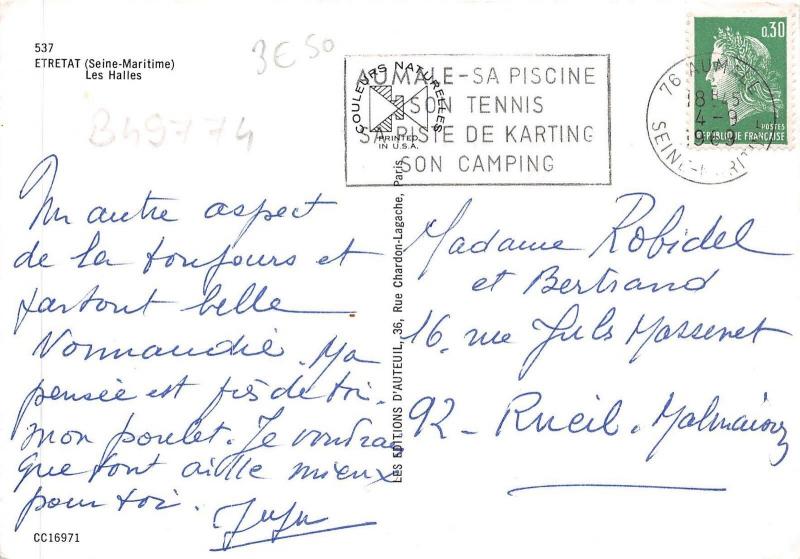 537
ETRETAT (Seine-Maritime)
Les Halles
3E50
B49774
COULEURS NATURELLES
PRINTED
IN U.S.A.
AUMALE-SA PISCINE
SON TENNIS
SA PISTE DE KARTING
SON CAMPING
76 AUMALE
18H45
4-9
1969
SEINE-MARITIME
0,30
POSTES
REPUBLIQUE FRANÇAISE
Un autre aspect
de la toujours et
partout belle
Normandie. Ma
pensée est près de toi.
mon poulet. Je voudrais
que tout aille mieux
pour toi.
Juju
LES EDITIONS D'AUTEUIL, 36, Rue Chardon-Lagache, Paris
Madame Robidel
et Bertrand
16, rue Jules Massenet
92 - Rueil-Malmaison
CC16971